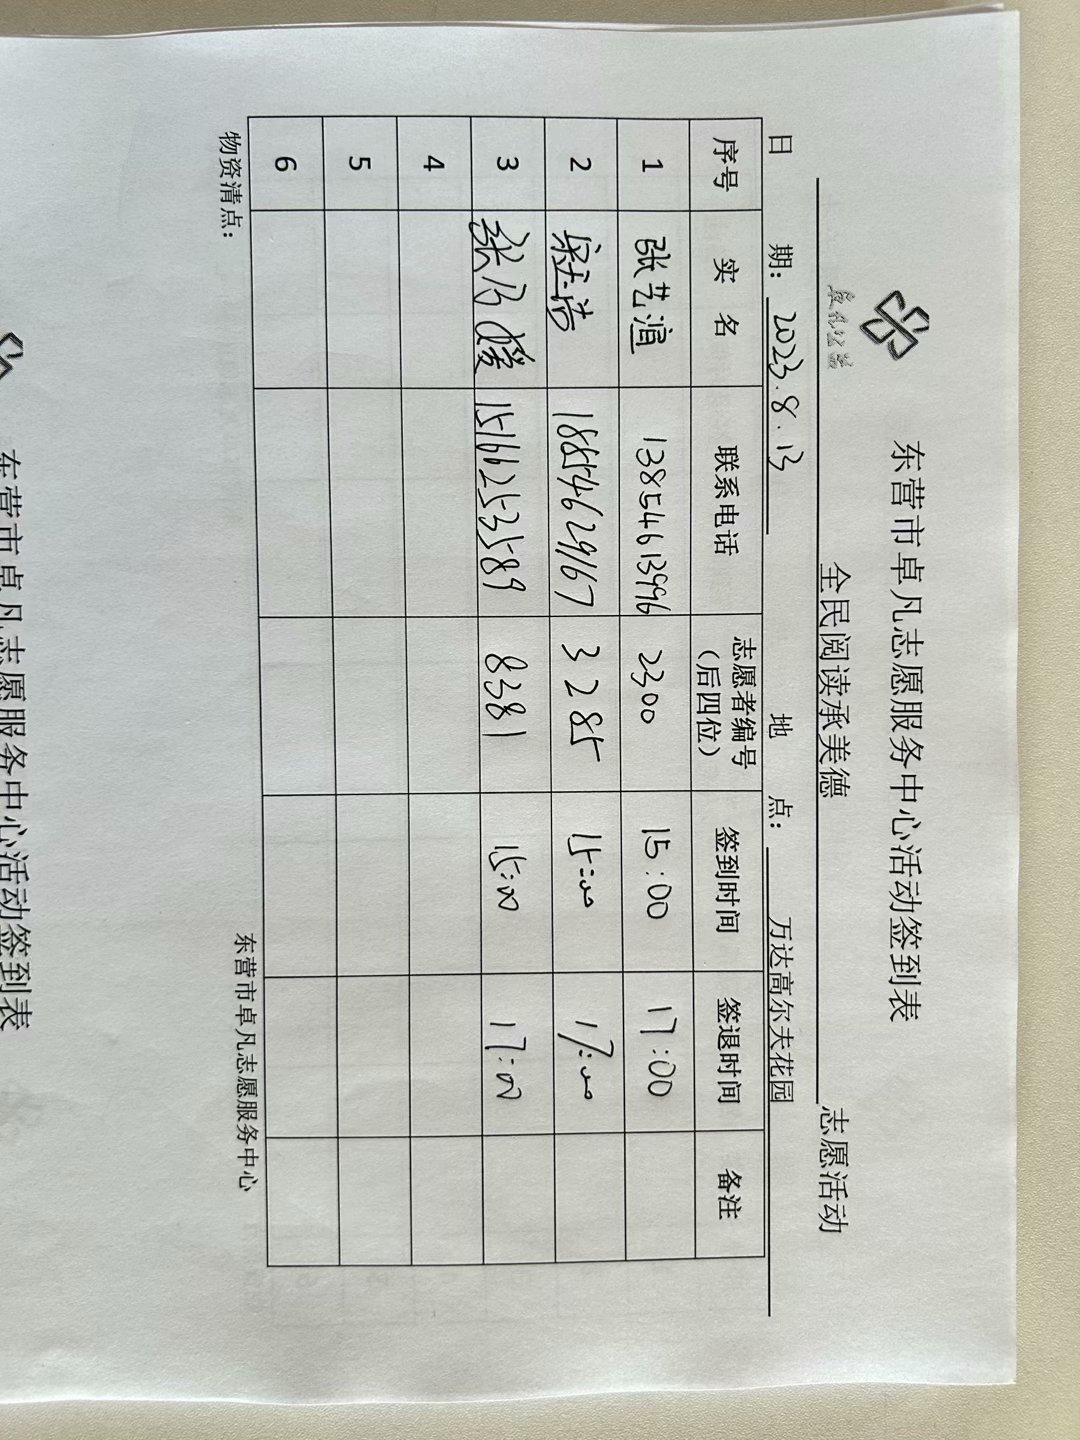 东营市卓凡志愿服务中心活动签到表
全民阅读承美德 志愿活动
日 期：2023.8.13 地 点：万达高尔夫花园
序号 实 名 联系电话 志愿者编号（后四位） 签到时间 签退时间 备注
1 张艺渲 13854613996 2300 15:00 17:00
2 18854629167 3285 15:00 17:00
3 15166253589 8381 15:00 17:00
4
5
6
物资清点： 东营市卓凡志愿服务中心
东营市卓凡志愿服务中心活动签到表